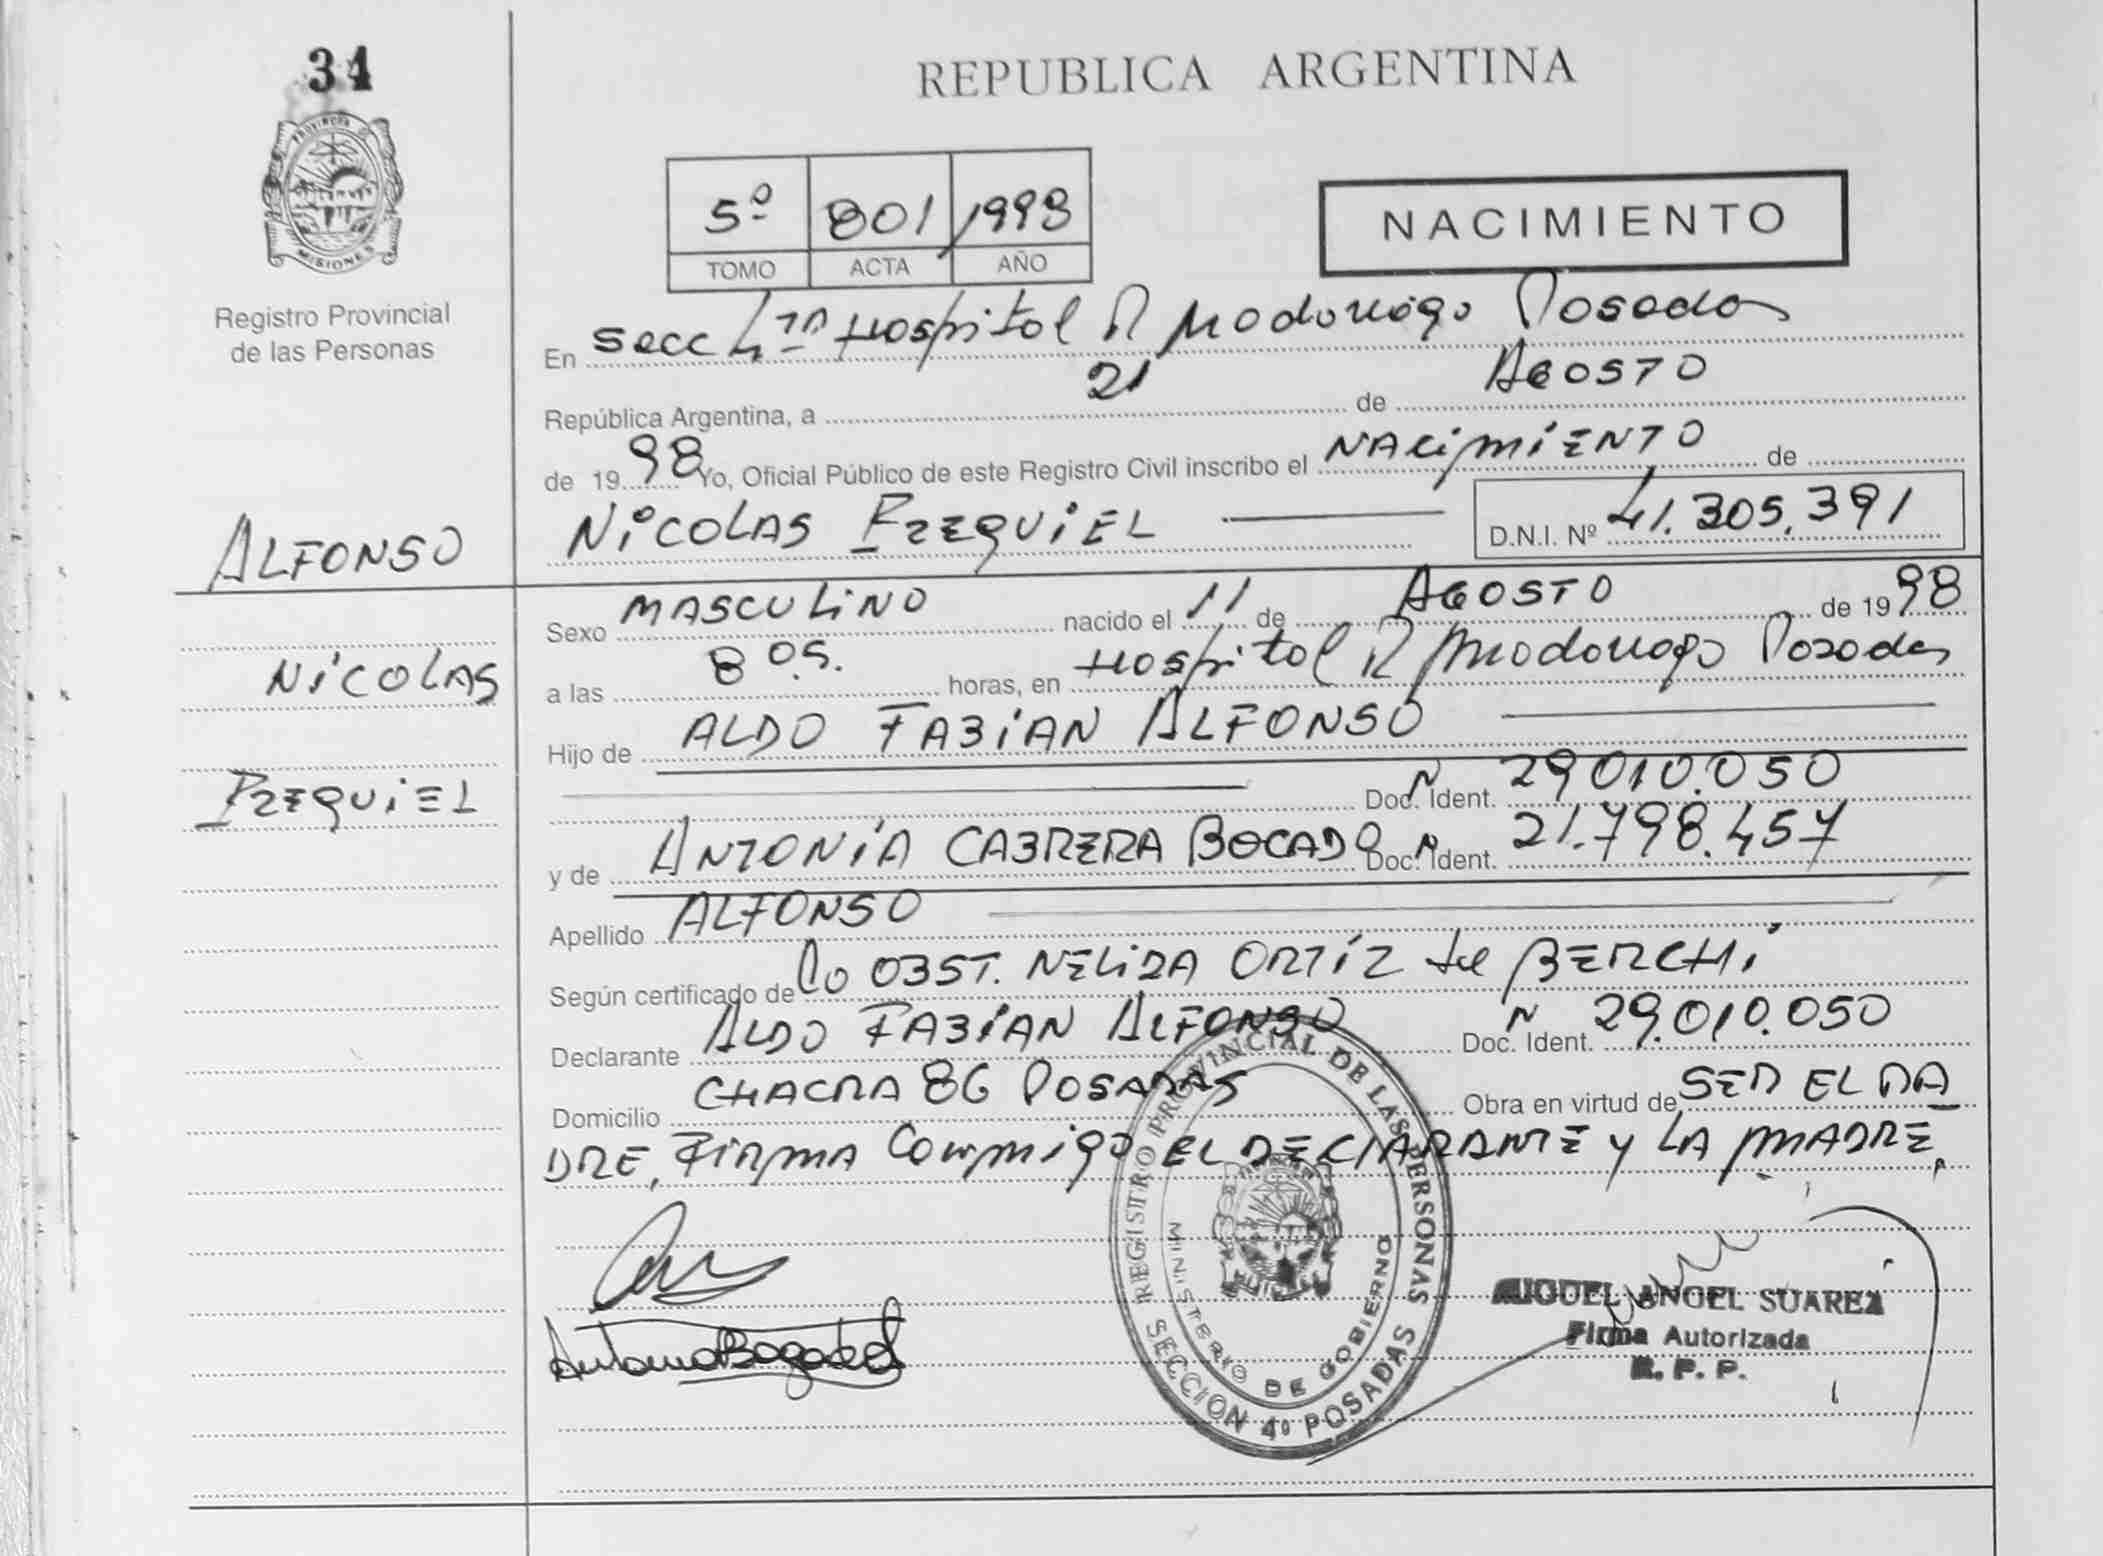 34
PROVINCIA D
MISIONES
Registro Provincial
de las Personas
REPUBLICA ARGENTINA
5º 801 1998
TOMO ACTA AÑO
NACIMIENTO
En Secc 4ta Hospital R Madariaga Posadas
República Argentina, a 21 de AGOSTO
de 1998 Yo, Oficial Público de este Registro Civil inscribo el NACIMIENTO de
NICOLAS EZEQUIEL D.N.I. Nº 41.305.391
ALFONSO
NICOLAS
EZEQUIEL
Sexo MASCULINO nacido el 11 de AGOSTO de 1998
a las 8 05. horas, en Hospital R Madariaga Posadas
Hijo de ALDO FABIAN ALFONSO
Doc. Ident. N 29.010.050
y de ANTONIA CABRERA BOGADO Doc. Ident. N 21.798.457
Apellido ALFONSO
Según certificado de la OBST. NELIDA ORTIZ de BERCHI
Declarante ALDO FABIAN ALFONSO Doc. Ident. N 29.010.050
Domicilio CHACRA 86 POSADAS Obra en virtud de SER EL PA
DRE, FIRMA Conmigo EL DECLARANTE y LA MADRE.
REGISTRO PROVINCIAL DE LAS PERSONAS
MINISTERIO DE GOBIERNO
SECCION 4º POSADAS
MIGUEL ANGEL SUAREZ
Firma Autorizada
R. P. P.